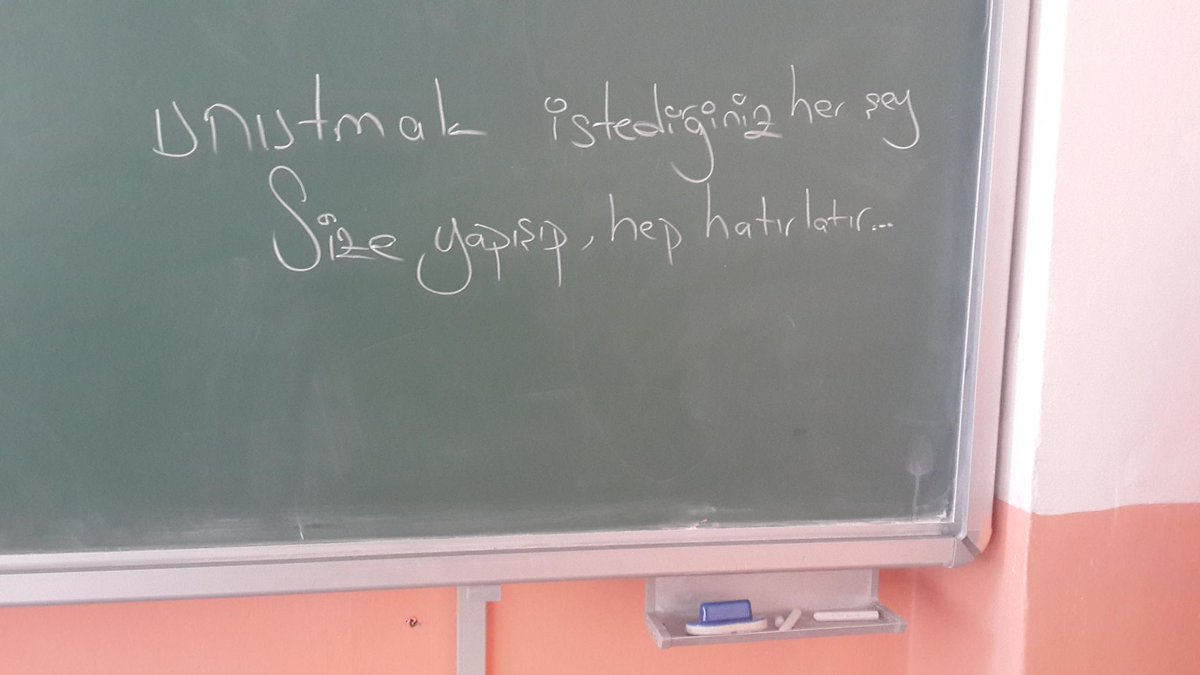 unutmak istediğiniz her şey
Size yapışıp, hep hatırlatır...